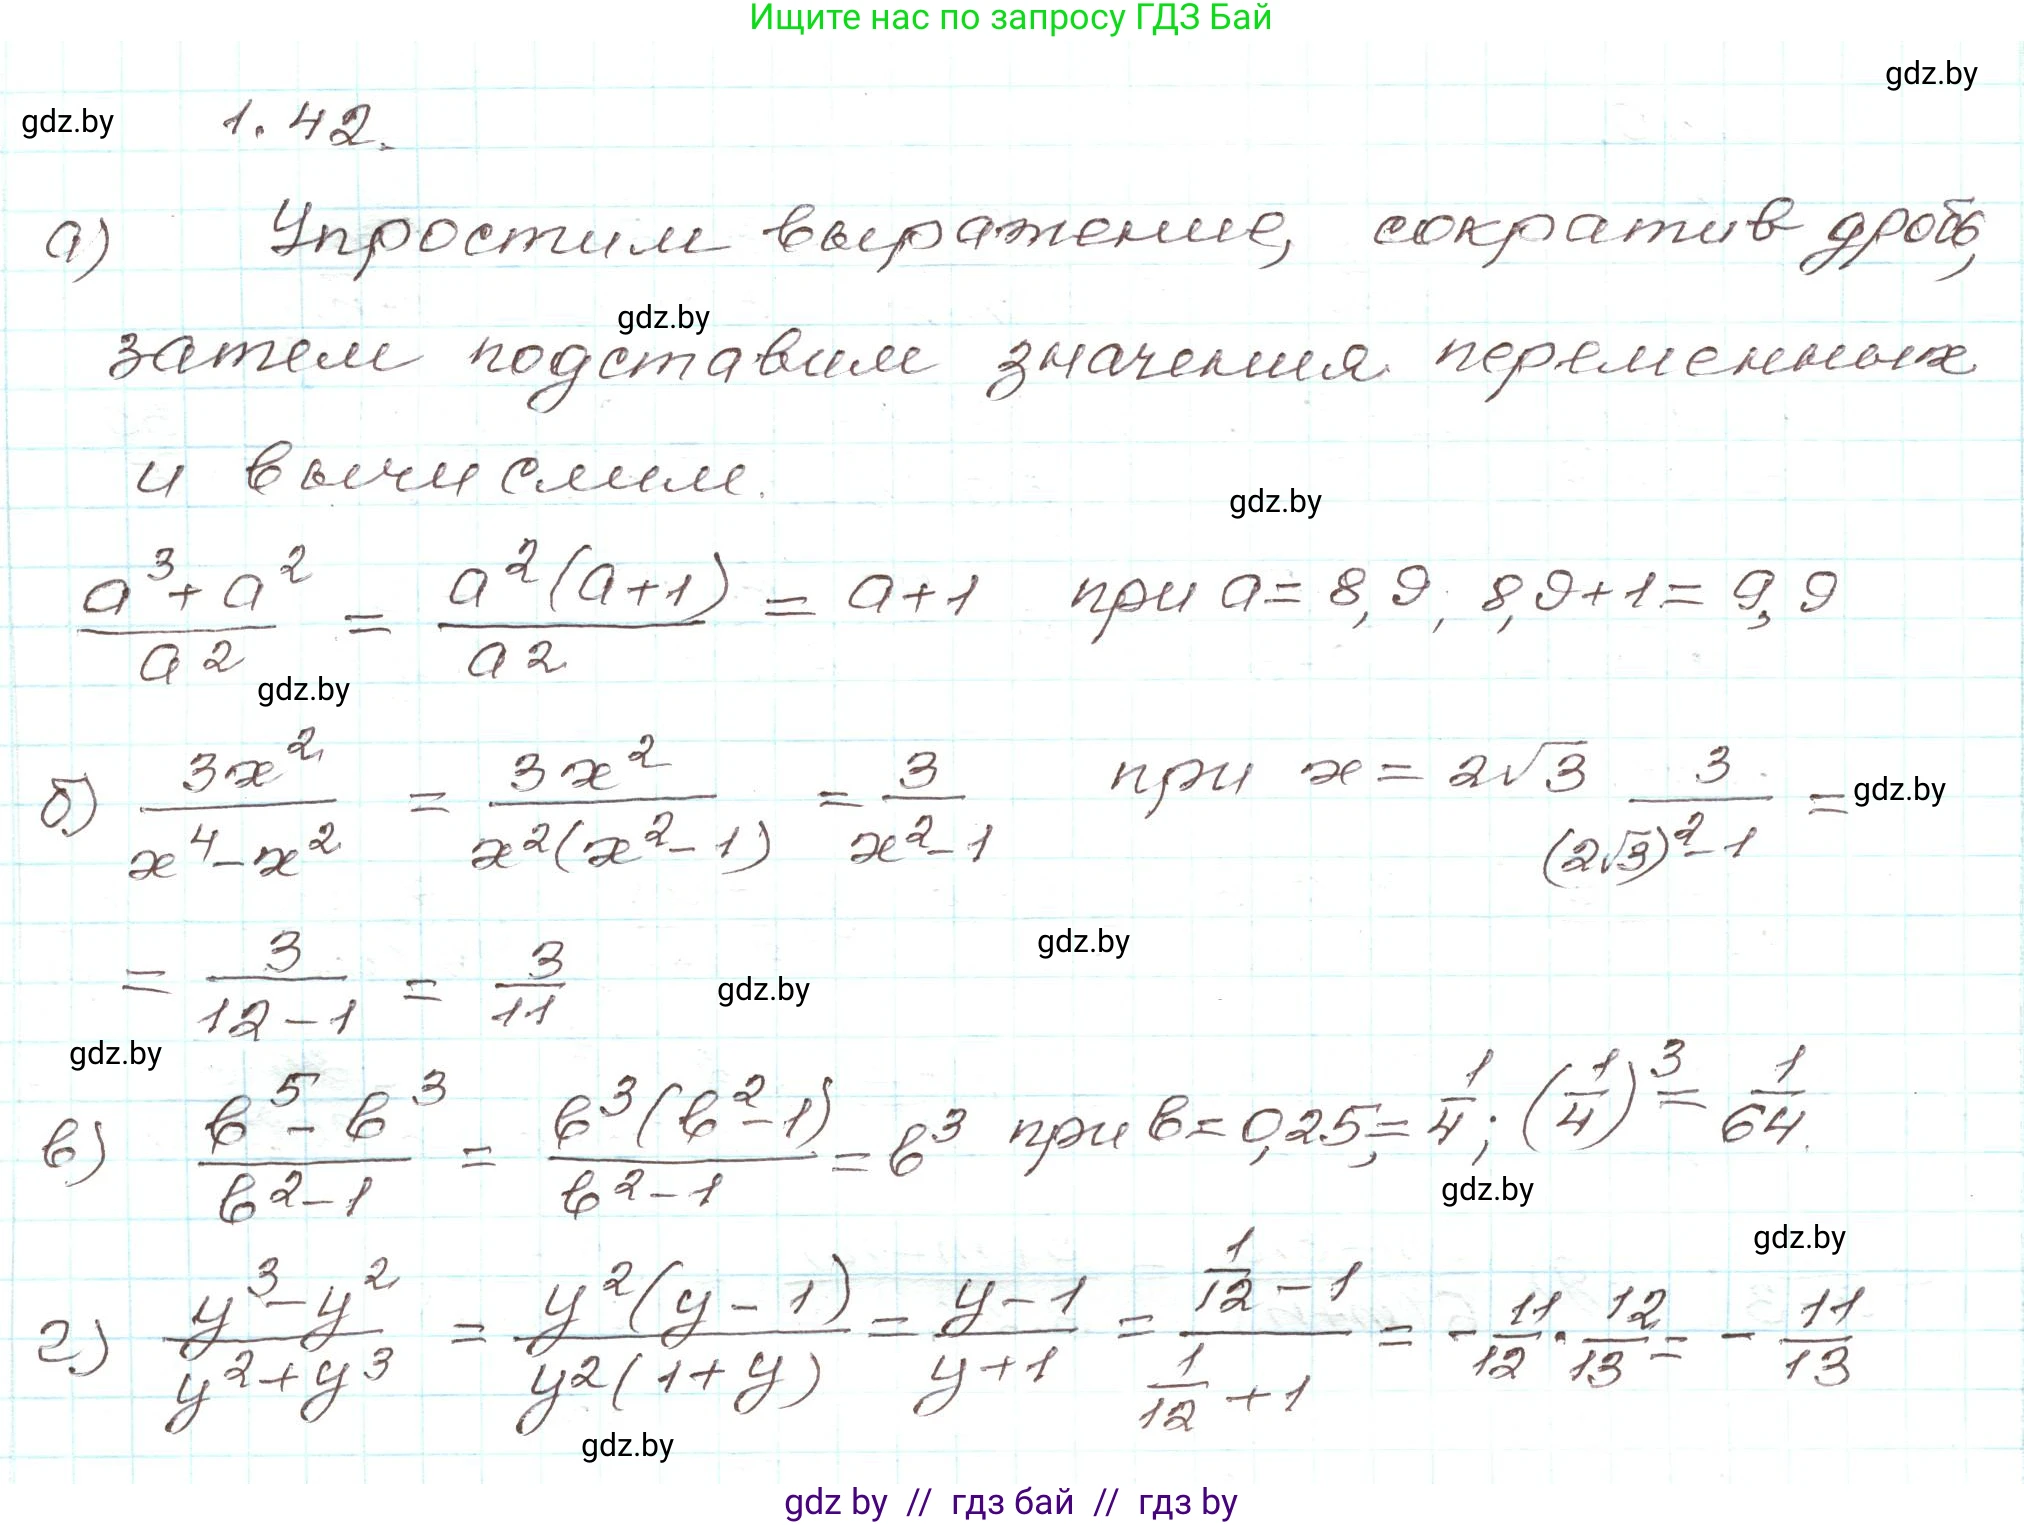 Ищите нас по запросу ГДЗ Бай
gdz.by
gdz.by
1.42.
а) Упростим выражение, сократив дробь,
gdz.by
затем подставим значения переменных
и вычислим.
gdz.by
a³+a²/a² = a²(a+1)/a² = a+1 при a=8,9; 8,9+1=9,9
gdz.by
б) 3x²/x⁴-x² = 3x²/x²(x²-1) = 3/x²-1 при x=2√3 3/(2√3)²-1 =
gdz.by
= 3/12-1 = 3/11
gdz.by
gdz.by
gdz.by
в) в⁵-в³/в²-1 = в³(в²-1)/в²-1 = в³ при в=0,25;=1/4; (1/4)³=1/64.
gdz.by
gdz.by
г) y³-y²/y²+y³ = y²(y-1)/y²(1+y) = y-1/y+1 = 1/12-1/1/12+1 = -11/12·12/13= -11/13
gdz.by
gdz by // гдз бай // гдз by